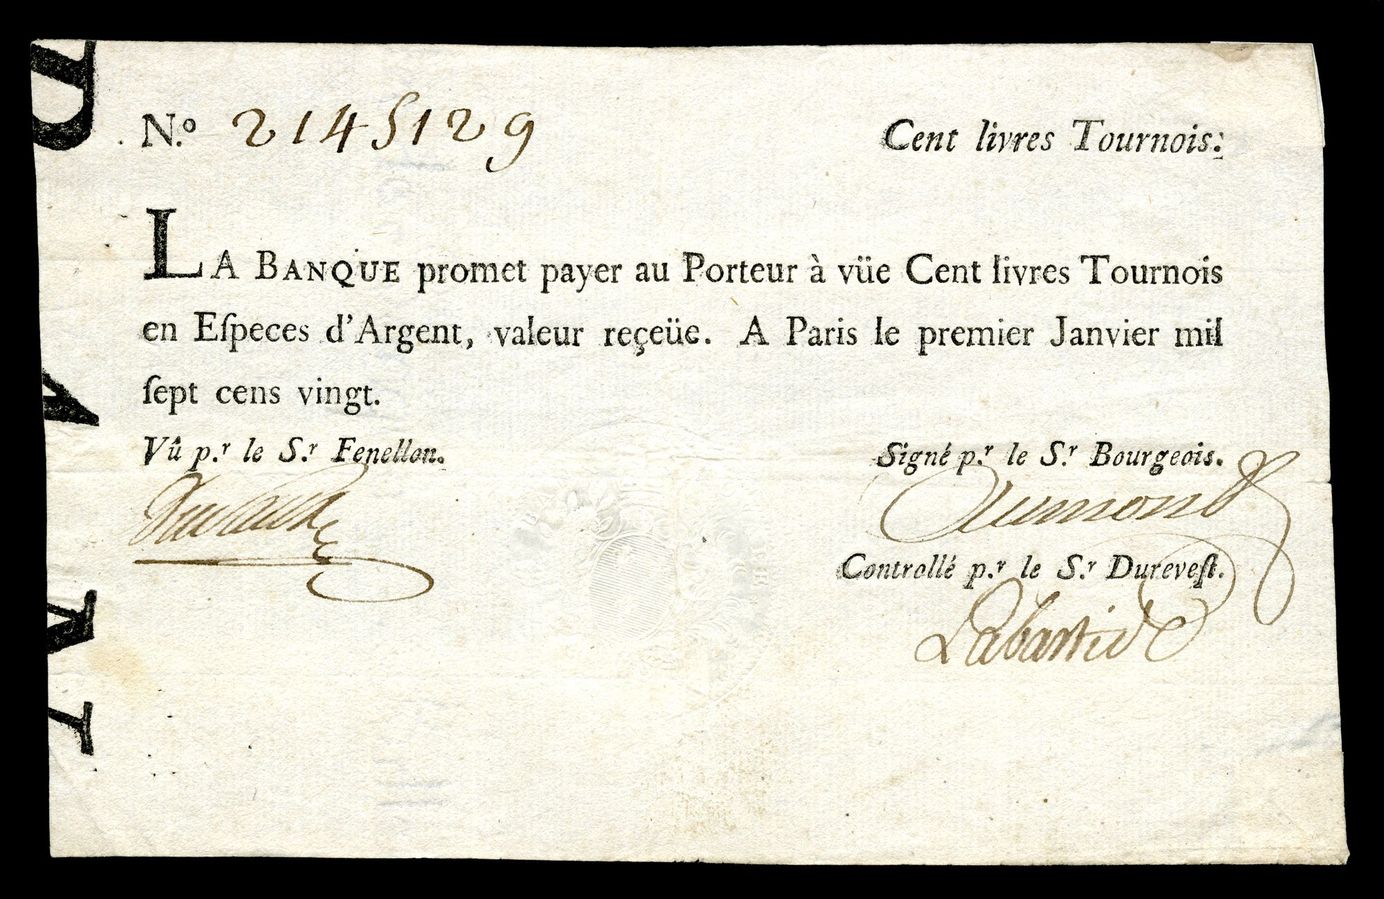 N.º 2145129 Cent livres Tournois:
LA BANQUE promet payer au Porteur à vüe Cent livres Tournois
en Eſpeces d'Argent, valeur reçeüe. A Paris le premier Janvier mil
ſept cens vingt.
Vû p.r le S.r Fenellon. Signé p.r le S.r Bourgeois.
Controllé p.r le S.r Dureveſt.
Labastide